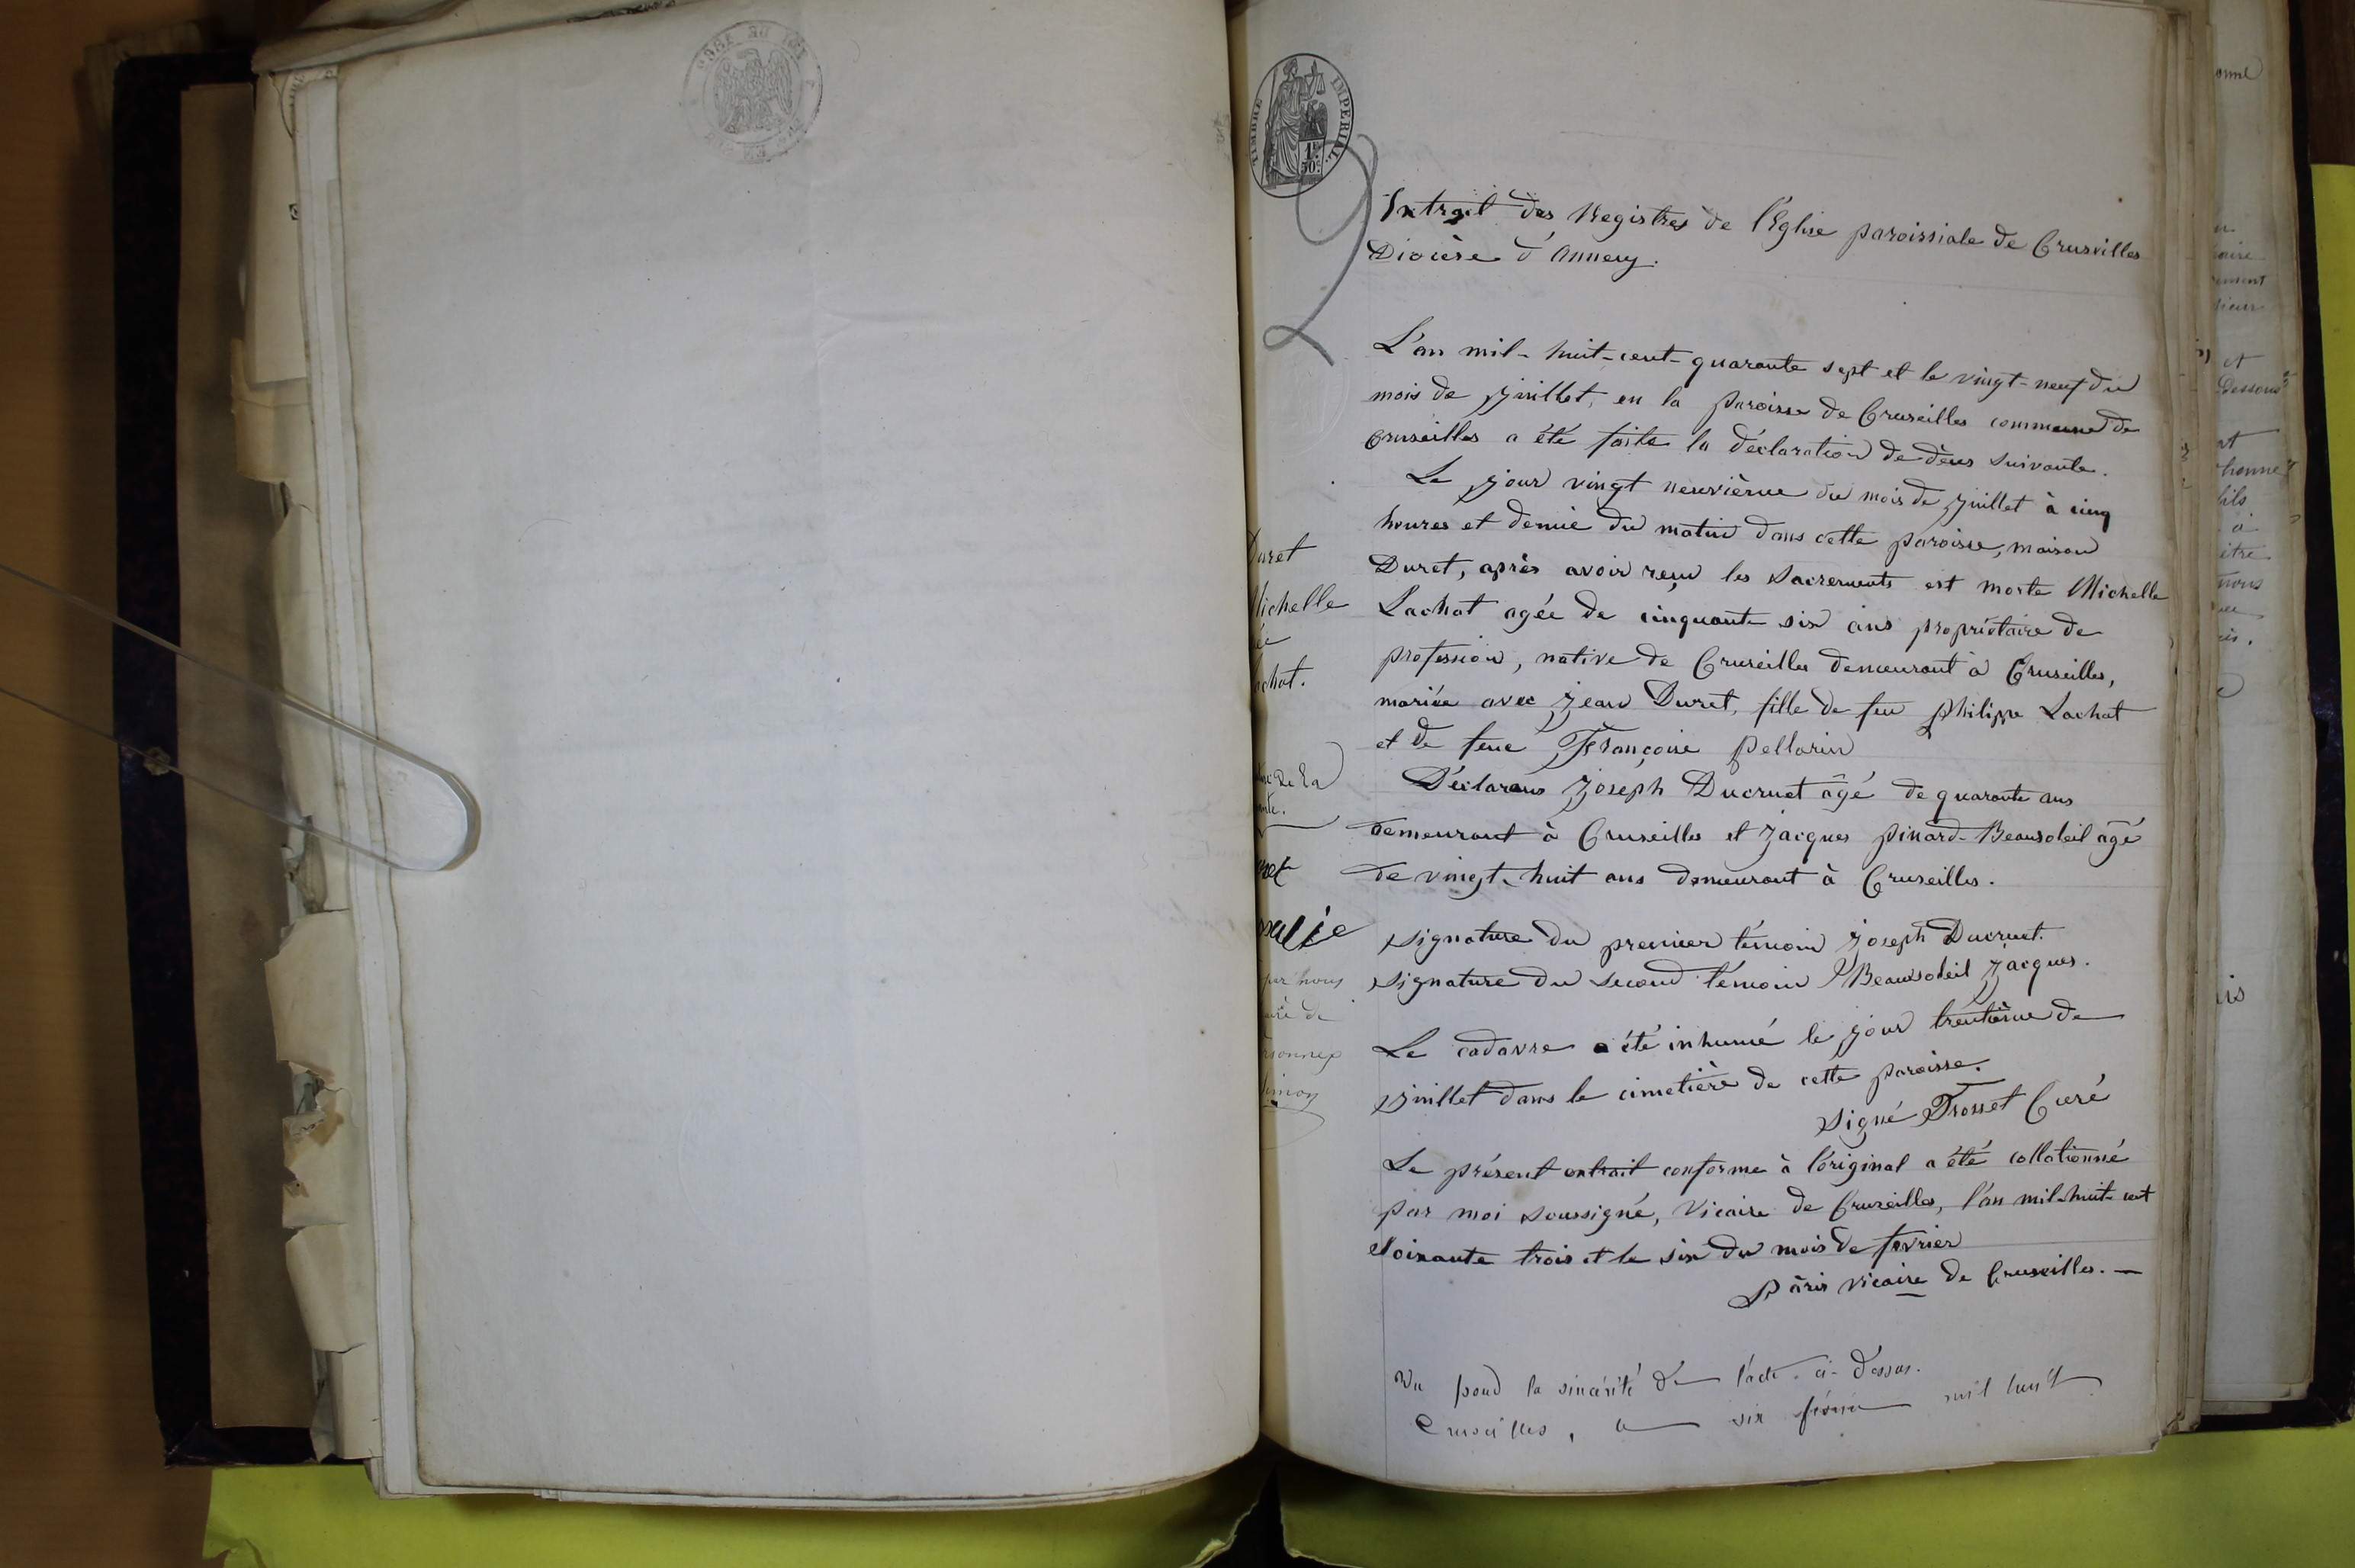 TIMBRE IMPÉRIAL
1F
50c
Extrait des Registres de l'Eglise paroissiale de Crusvilles
Diocèse d'Annecy.
L'an mil-huit-cent-quarante sept et le vingt-neuf du
mois de Juillet, en la Paroisse de Cruseilles commune de
Cruseilles a été faite la déclaration de décès suivante.
Le jour vingt neuvième du mois de Juillet à cinq
heures et demie du matin dans cette paroisse, maison
Duret, après avoir reçu les Sacrements est morte Michelle
Lachat agée de cinquante six ans propriétaire de
profession, native de Cruseilles demeurant à Cruseilles,
mariée avec Jean Duret, fille de feu Philippe Lachat
et de feue Françoise Pellarin
Déclarans Joseph Ducruet âgé de quarante ans
demeurant à Cruseilles et Jacques Pinard-Beausoleil âgé
de vingt-huit ans demeurant à Cruseilles.
Signature du premier témoin Joseph Ducruet.
Signature du second témoin P Beausoleil Jacques.
Le cadavre a été inhumé le jour trentième de
Juillet dans le cimetière de cette Paroisse.
Signé Trosset Curé
Le présent extrait conforme à l'original a été collationné
par moi soussigné, Vicaire de Cruseilles, l'an mil-huit-cent
Soixante trois et le six du mois de fevrier
Pâris vicaire de Cruseilles.
Vu pour la sincérité de l'acte ci-dessus.
Cruseilles, le six février mil huit
Duret
Michelle
née
Lachat.
de la
par nous
de